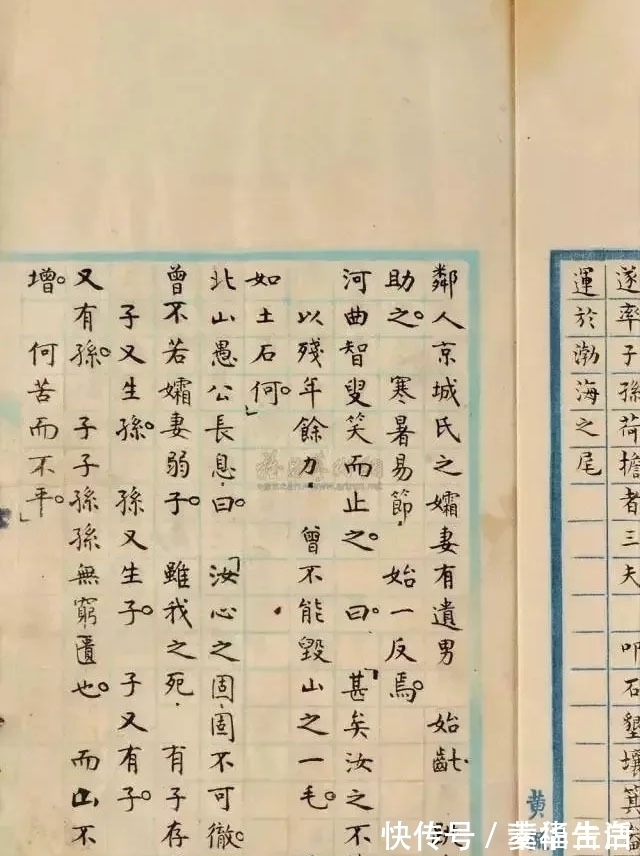 遂率子孫荷擔者三夫 叩石墾壤箕
運於渤海之尾
黄
鄰人京城氏之孀妻有遺男 始齔
助之。 寒暑易節．始一反焉。
河曲智叟笑而止之。 曰。「甚矣汝之不
以殘年餘力．曾不能毀山之一毛。
如土石何。」
北山愚公長息．曰。「汝心之固．固不可徹。
曾不若孀妻弱子。 雖我之死．有子存
子又生孫。 孫又生子。 子又有子。
又有孫。 子子孫孫無窮匱也。 而山不
增。 何苦而不平。」
快传号／福生活